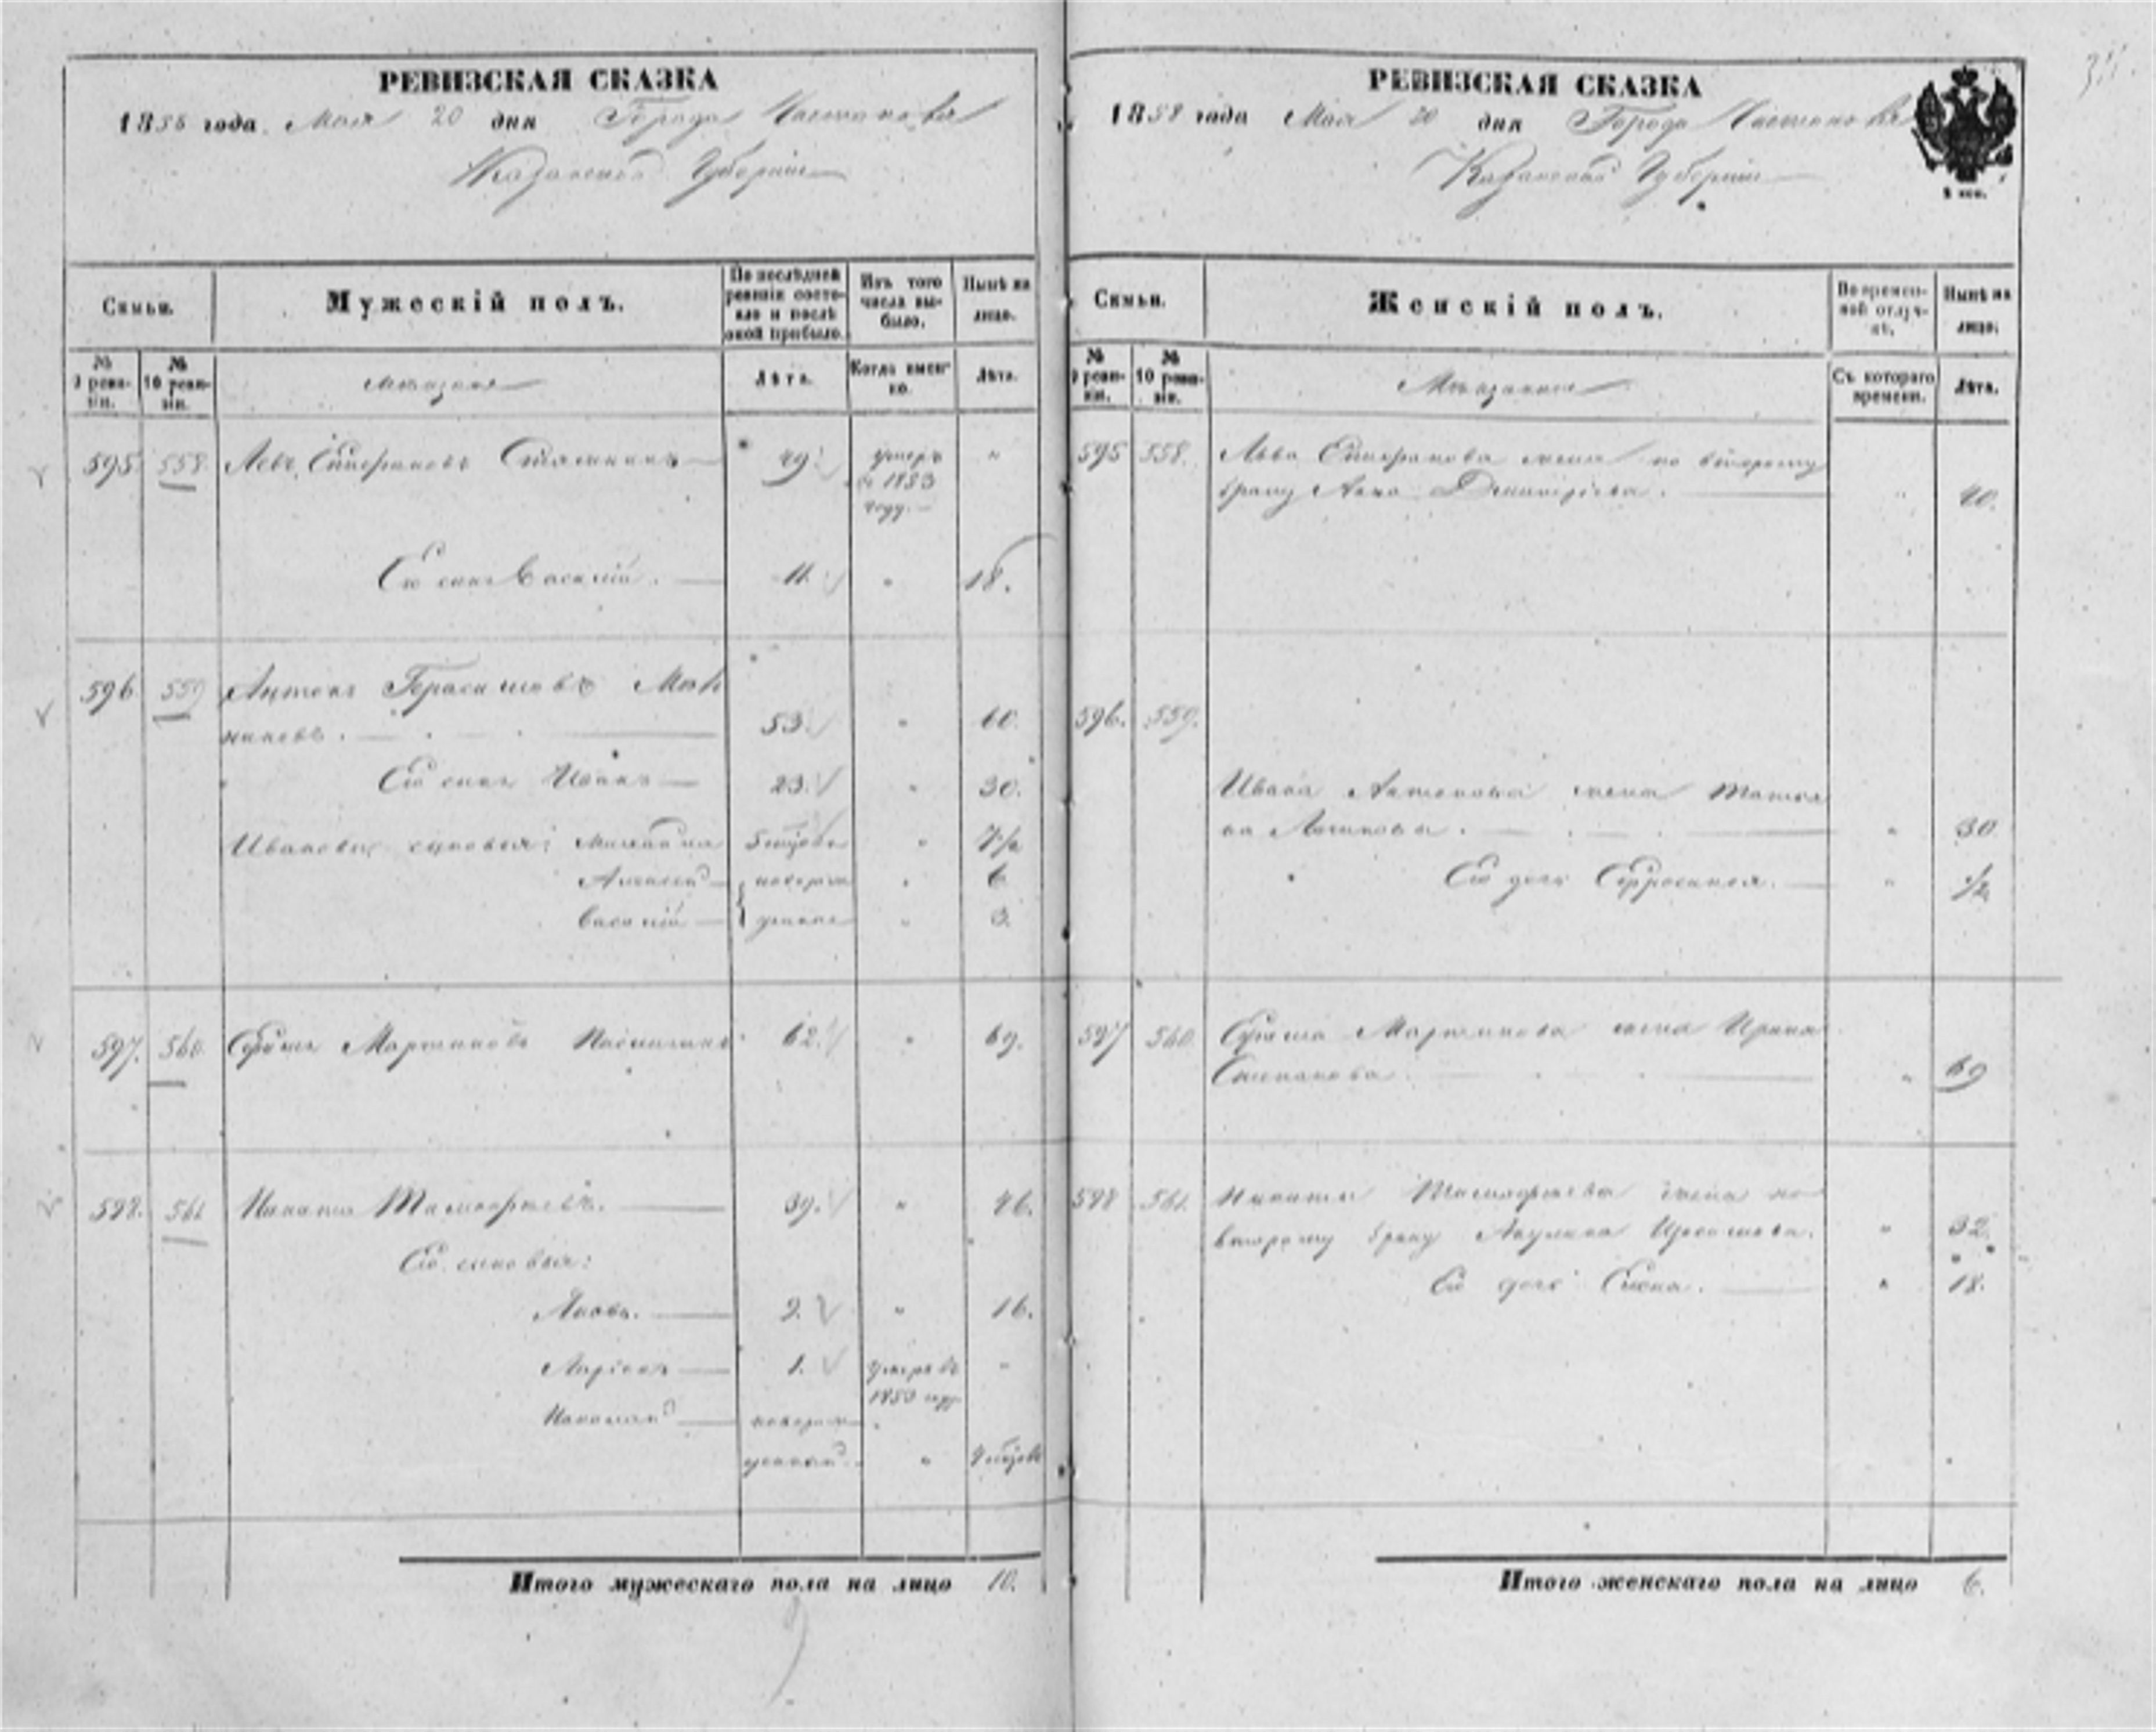 РЕВИЗСКАЯ СКАЗКА
1858 года Мая 20 дня Города Чистополя
Казанской Губернiи
Семьи.
Мужескiй полъ.
По послѣдней ревизiи состояло и послѣ оной прибыло.
Изъ того числа выбыло.
Нынѣ на лицо.
№ 9 ревизiи.
№ 10 ревизiи.
Мѣщане
Лѣта.
Когда именно.
Лѣта.
595. 558. Левъ Степановъ 49. умеръ въ 1853 году. "
Его сынъ Василiй. 11. " 18.
596. 559 Антонъ Герасимовъ
53. " 60.
Его сынъ Иванъ 23. " 30.
Ивановы сыновья: " 7 1/2
Алексѣй " 6
Василiй " 3.
597. 560. Ефимъ Мартыновъ 62. " 69.
598. 561 Никита 39. " 46.
Его сыновья:
Яковъ. 9. " 16.
Ларiонъ 1. умеръ въ 1850 году "
новорожденный "
Итого мужескаго пола на лицо 10.
РЕВИЗСКАЯ СКАЗКА
1858 года Мая 20 дня Города Чистополя
Казанской Губернiи
Семьи.
Женскiй полъ.
Во временной отлучкѣ.
Нынѣ на лицо.
№ 9 ревизiи.
№ 10 ревизiи.
Мѣщанки
Съ котораго времени.
Лѣта.
595 558. Льва Степанова жена по второму
браку Анна Дмитрiева. " 40.
596. 559.
Ивана Антонова жена Татья
на " 30
Его дочь Ефросинья. " 1/2
597 560 Ефима Мартынова жена Ирина
Степанова. " 69
598 561. Никиты жена по
второму браку Акулина " 32.
Его дочь Елена. " 18.
Итого женскаго пола на лицо 6.